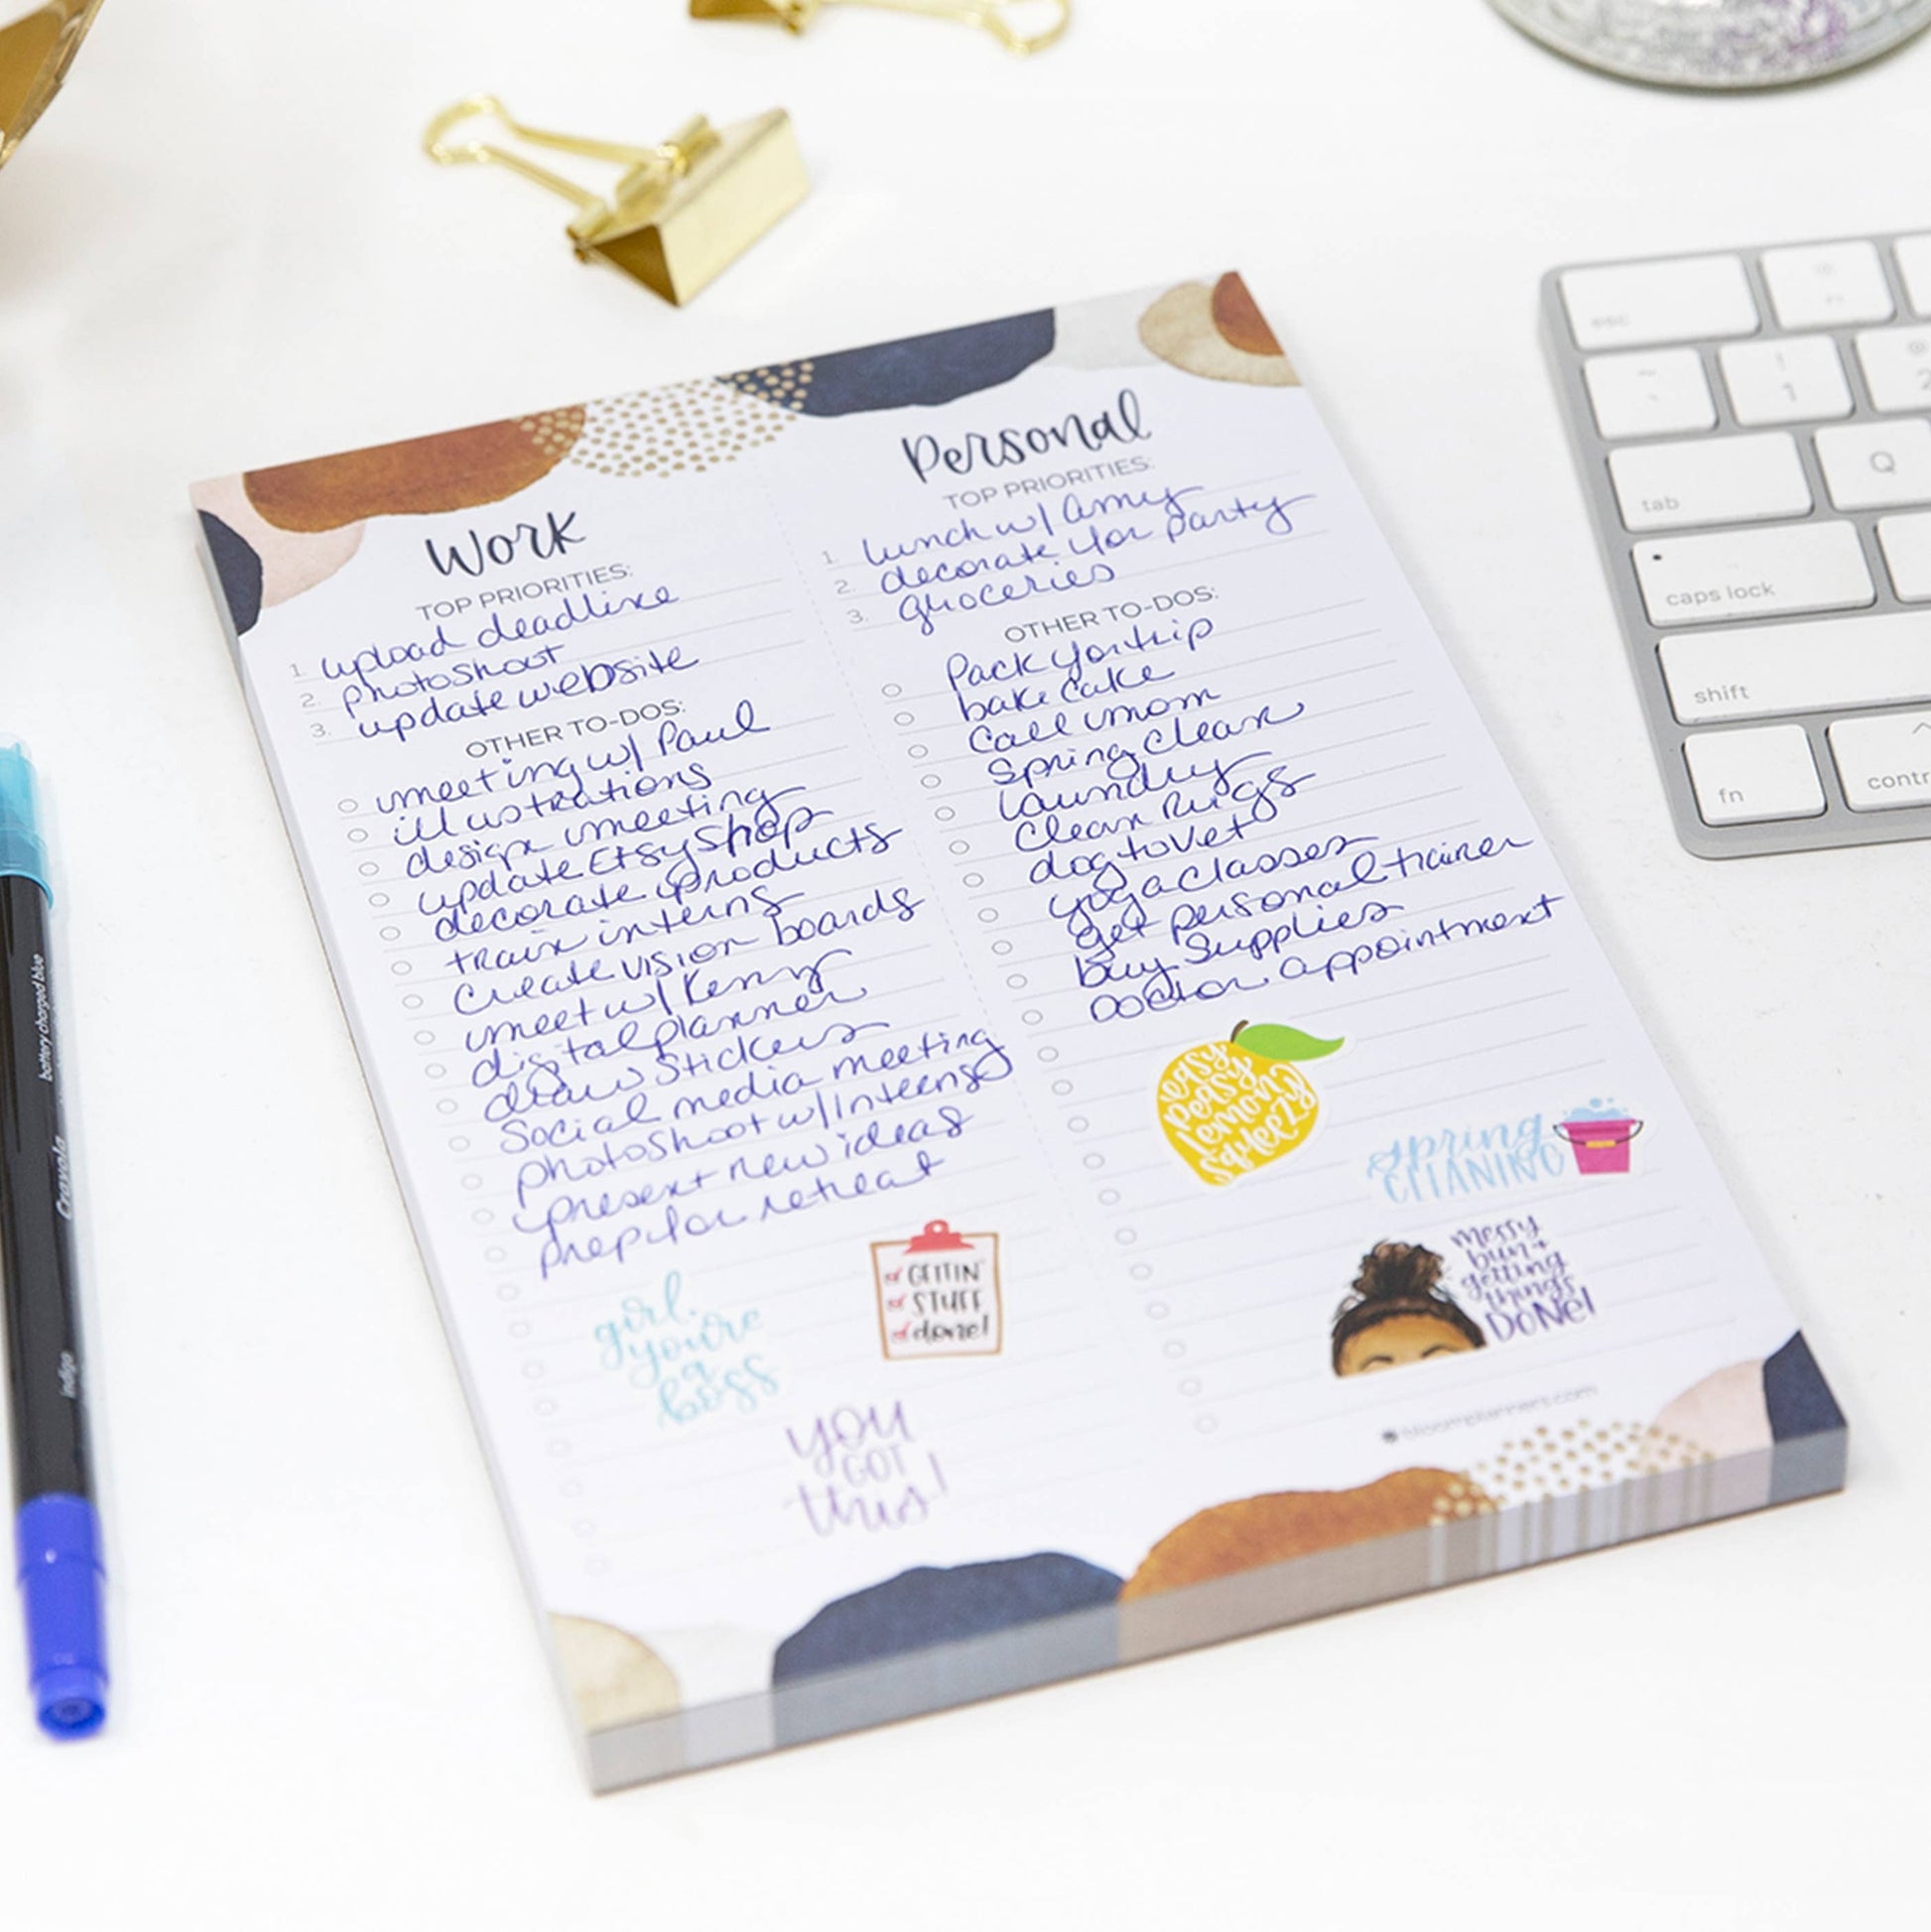 Work
TOP PRIORITIES:
1. upload deadline
2. photoshoot
3. update website
OTHER TO-DOS:
meeting w/ Paul
illustrations
design meeting
update Etsy Shop
decorate products
train interns
create vision boards
meet w/ Kenny
digital planner
draw Stickers
Social media meeting
photoshoot w/ Interns
present new ideas
prep for retreat
girl,
you're
a
boss
GETTIN'
STUFF
done!
YOU
GOT
this!
Personal
TOP PRIORITIES:
1. lunch w/ Amy
2. decorate for party
3. groceries
OTHER TO-DOS:
Pack for trip
bake cake
Call mom
Spring clean
laundry
Clean Rugs
dog to Vet
yoga classes
get personal trainer
buy Supplies
Doctor appointment
easy
peasy
lemon
squeezy
spring
CLEANING
messy
bun +
getting
things
DONE!
bloomplanners.com
esc
1
2
tab
Q
caps lock
shift
fn
contr
battery charged blue
Crayola
indigo